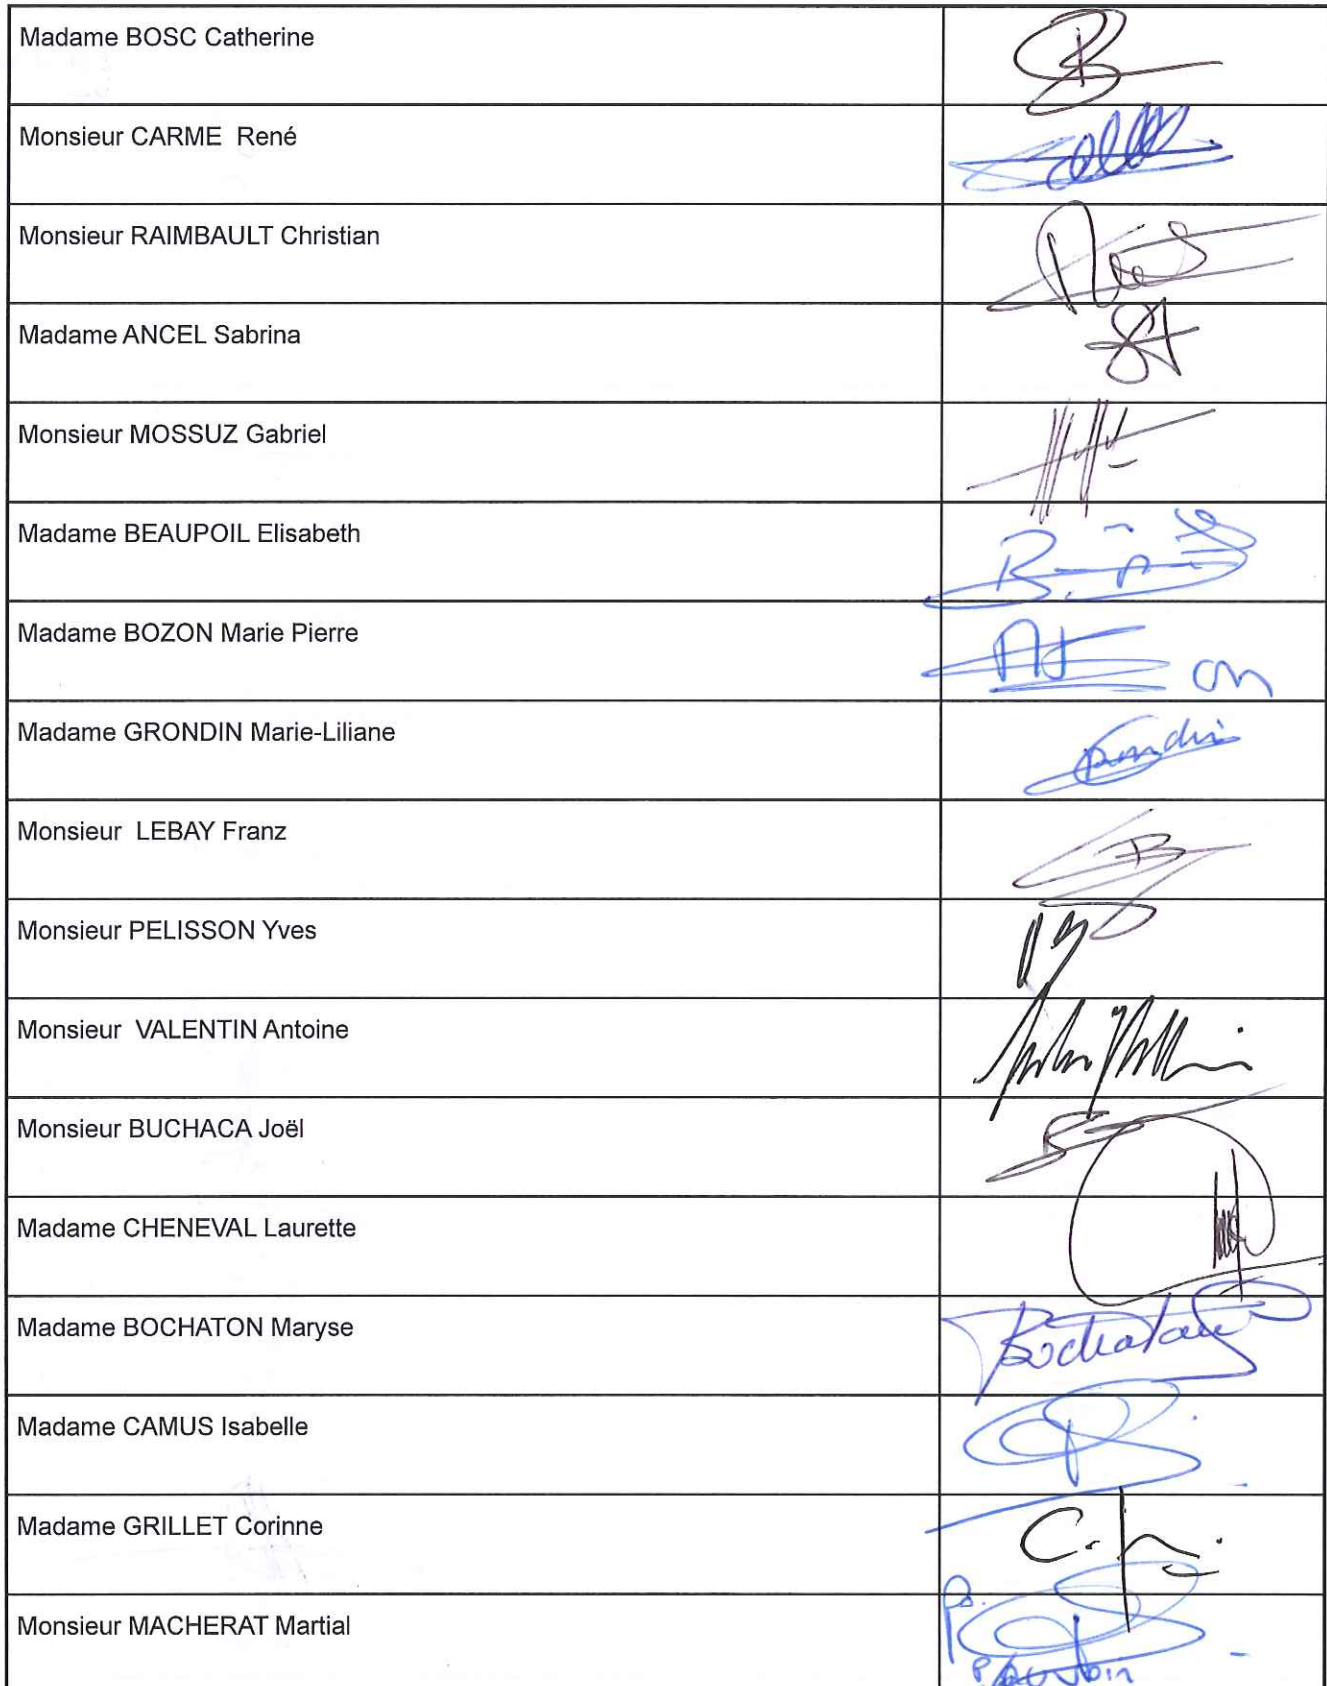 Madame BOSC Catherine
Monsieur CARME René
Monsieur RAIMBAULT Christian
Madame ANCEL Sabrina
Monsieur MOSSUZ Gabriel
Madame BEAUPOIL Elisabeth
Madame BOZON Marie Pierre
Madame GRONDIN Marie-Liliane
Monsieur LEBAY Franz
Monsieur PELISSON Yves
Monsieur VALENTIN Antoine
Monsieur BUCHACA Joël
Madame CHENEVAL Laurette
Madame BOCHATON Maryse
Bochaton
Madame CAMUS Isabelle
Madame GRILLET Corinne
Monsieur MACHERAT Martial
pouvoir